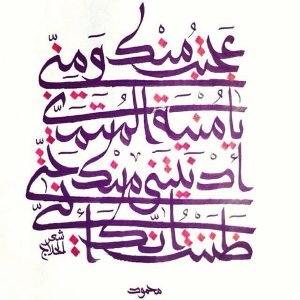 عجبتُ منك ومنّي
يا مُنية المتمنّي
أدنيتني منك حتّى
ظننت أنّك أنّي
شعر الحلاج
محمود